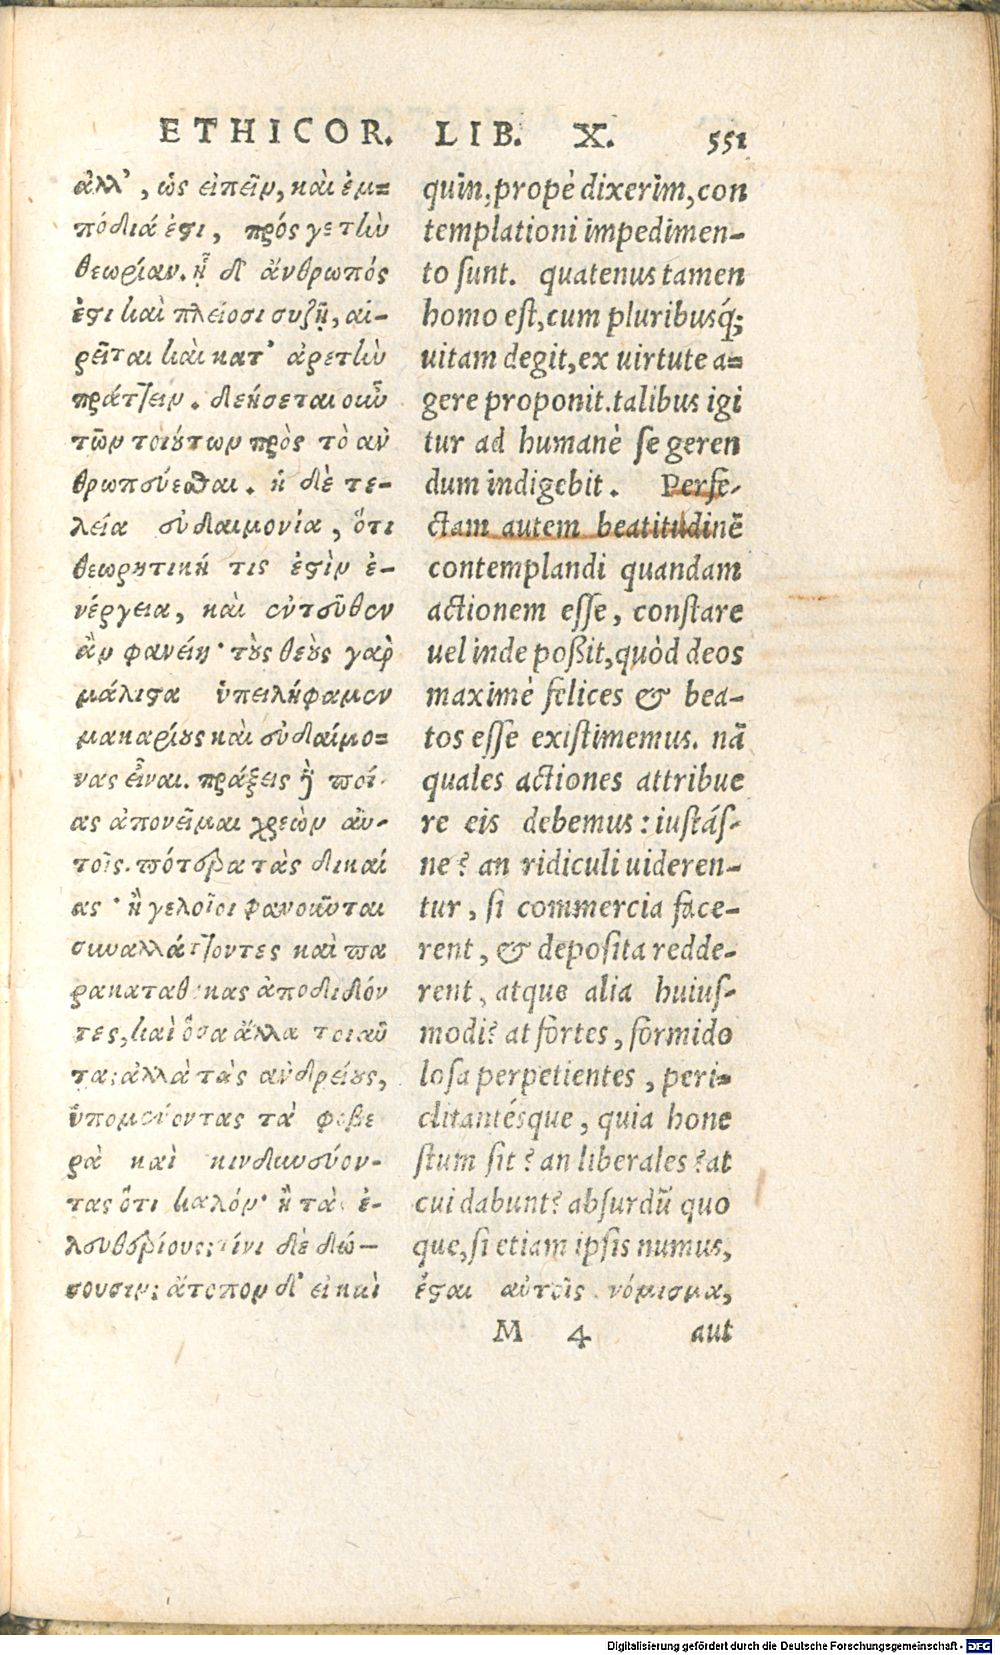 ETHICOR. LIB. X. 551
ἀλλ', ὡς εἰπεῖν, καὶ ἐμ=
πόδιά ἐστι, πρός γε τὴν
θεωρίαν. ᾗ δ' ἄνθρωπός
ἐστι καὶ πλείοσι συζῇ, αἱ-
ρεῖται καὶ κατ' ἀρετὴν
πράττειν. δεήσεται οὖν
τῶν τοιούτων πρὸς τὸ ἀν
θρωπεύεσθαι. ἡ δὲ τε-
λεία εὐδαιμονία, ὅτι
θεωρητική τις ἐστὶν ἐ-
νέργεια, καὶ ἐντεῦθεν
ἂν φανείη· τοὺς θεοὺς γὰρ
μάλιστα ὑπειλήφαμεν
μακαρίους καὶ εὐδαίμο=
νας εἶναι. πράξεις δὲ ποί-
ας ἀπονεῖμαι χρεὼν αὐ-
τοῖς. πότερα τὰς δικαί
ας· ἢ γελοῖοι φανοῦνται
συναλλάττοντες καὶ πα
ρακαταθήκας ἀποδιδόν
τες, καὶ ὅσα ἄλλα τοιαῦ
τα; ἀλλὰ τὰς ἀνδρείους,
ὑπομένοντας τὰ φοβε
ρὰ καὶ κινδυνεύον-
τας ὅτι καλόν· ἢ τὰς ἐ-
λευθερίους; τίνι δὲ δώ-
σουσιν; ἄτοπον δ' εἰ καὶ
quin, propè dixerim, con
templationi impedimen-
to sunt. quatenus tamen
homo est, cum pluribusq́;
uitam degit, ex uirtute a=
gere proponit. talibus igi
tur ad humanè se geren
dum indigebit. Perfe-
ctam autem beatitudinẽ
contemplandi quandam
actionem esse, constare
uel inde poßit, quòd deos
maximè felices & bea-
tos esse existimemus. nã
quales actiones attribue
re eis debemus: iustás-
ne? an ridiculi uideren-
tur, si commercia face-
rent, & deposita redde-
rent, atque alia huius-
modi? at fortes, formido
losa perpetientes, peri=
clitantésque, quia hone
stum sit? an liberales? at
cui dabunt? absurdũ quo
que, si etiam ipsis numus,
ἔσται αὐτοῖς νόμισμα,
M 4 aut
Digitalisierung gefördert durch die Deutsche Forschungsgemeinschaft - DFG